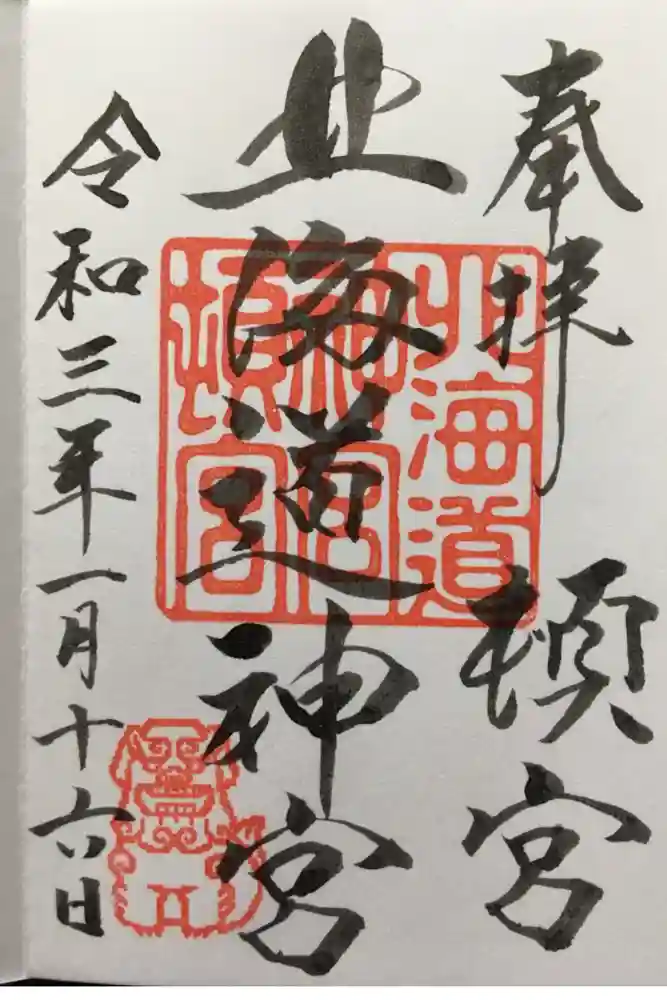 奉拝 頓宮
北海道神宮
令和三年一月十六日
北海道
神宮
頓宮